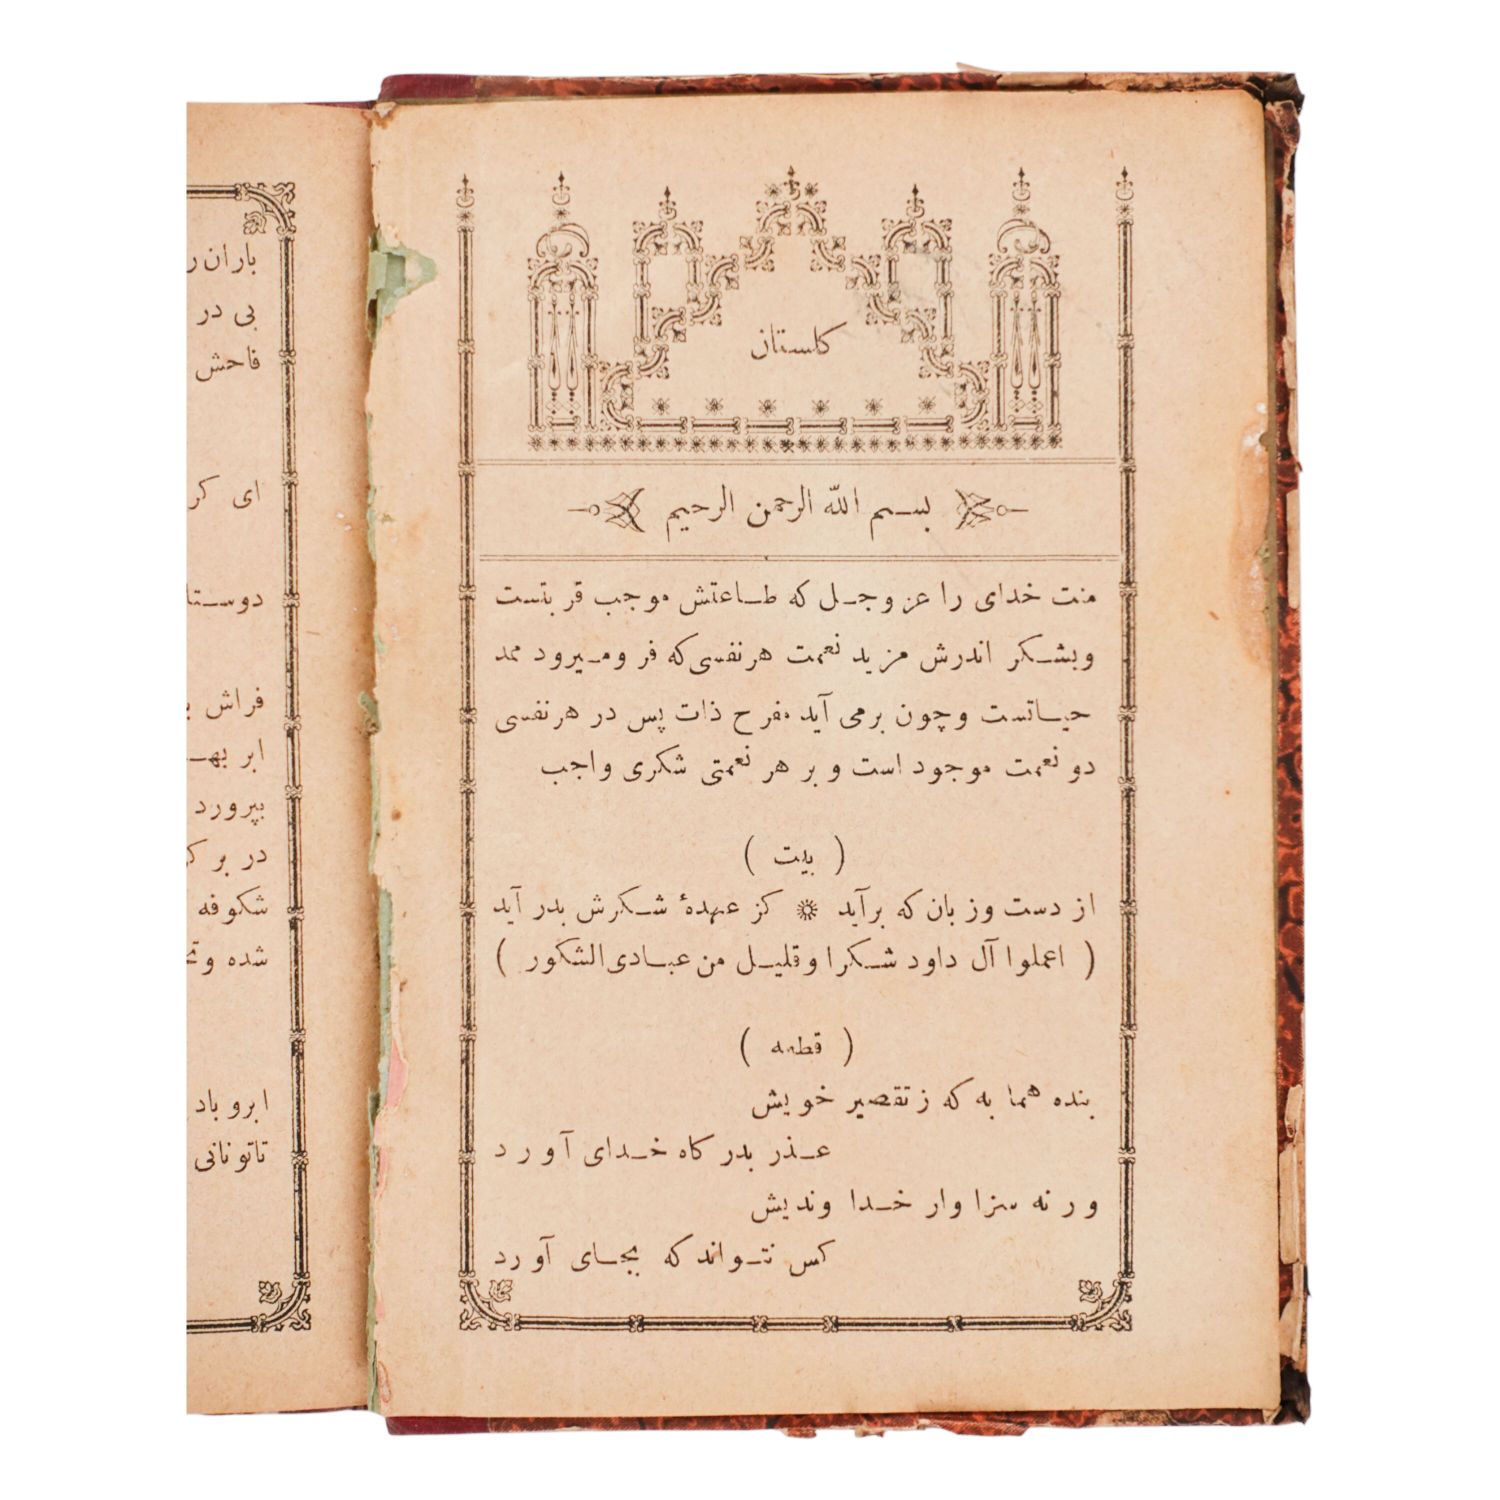 كلستان
بسم الله الرحمن الرحيم
منت خدای را عز وجل که طاعتش موجب قربتست
وبشکر اندرش مزید نعمت هر نفسی که فرومیرود ممد
حیاتست وچون برمی آید مفرح ذات پس در هر نفسی
دو نعمت موجود است و بر هر نعمتی شکری واجب
( بیت )
از دست وزبان که برآید ❊ کز عهدهٔ شکرش بدر آید
( اعملوا آل داود شکرا وقلیل من عبادی الشکور )
( قطعه )
بنده هما به که ز تقصیر خویش
عذر بدرکاه خدای آورد
ورنه سزاوار خداوندیش
کس نتواند که بجای آورد
باران ر
بی در
فاحش
ای کر
دوستا
فراش ب
ابر بهـ
بپرورد
در بر کر
شکوفه
شده و
ابر و باد
تاتو نانی